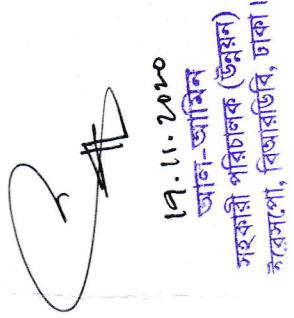 ১৭.১১.২০২০
আল-আমিন
সহকারী পরিচালক (উন্নয়ন)
ইরেসপো, বিআরডিবি, ঢাকা।